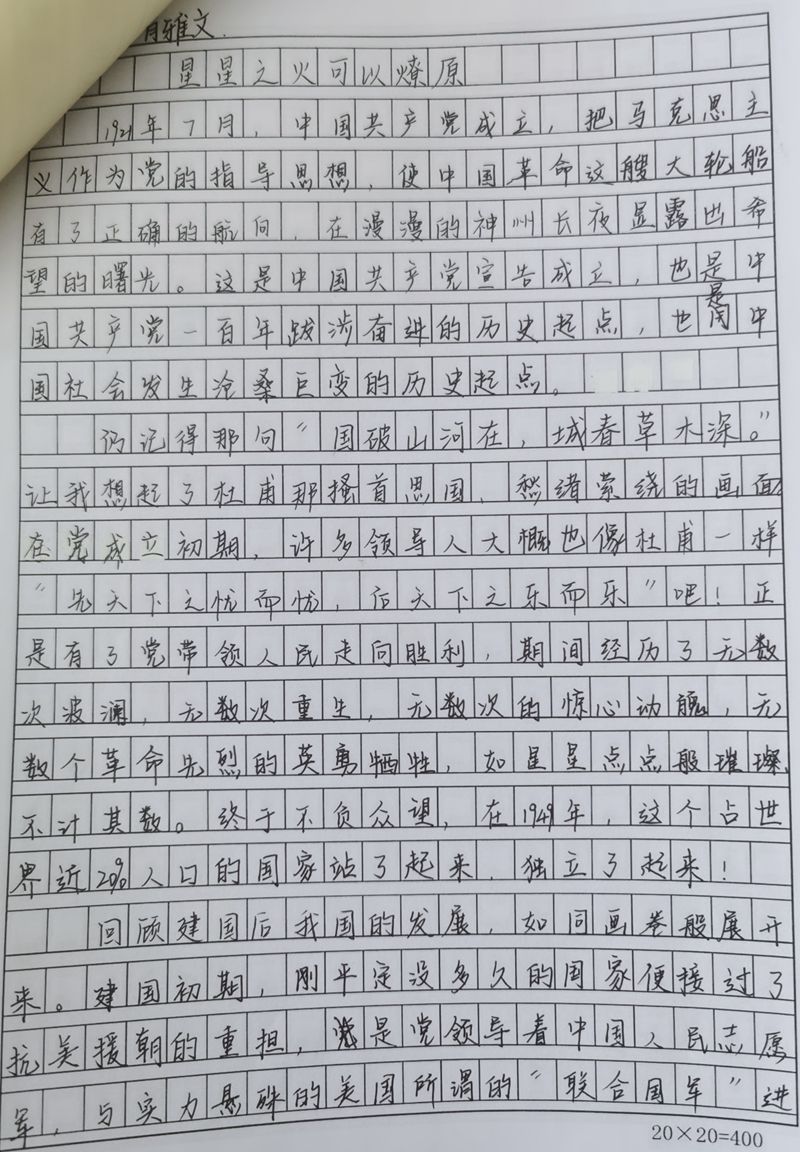 雅文
星星之火可以燎原
1921年7月，中国共产党成立，把马克思主
义作为党的指导思想，使中国革命这艘大轮船
有了正确的航向，在漫漫的神州长夜显露出希
望的曙光。这是中国共产党宣告成立，也是中
国共产党一百年跋涉奋进的历史起点，也是中
国社会发生沧桑巨变的历史起点。
仍记得那句“国破山河在，城春草木深。”
让我想起了杜甫那搔首思国，愁绪萦绕的画面
在党成立初期，许多领导人大概也像杜甫一样
“先天下之忧而忧，后天下之乐而乐”吧！正
是有了党带领人民走向胜利，期间经历了无数
次波澜，无数次重生，无数次的惊心动魄，无
数个革命先烈的英勇牺牲，如星星点点般璀璨
不计其数。终于不负众望，在1949年，这个占世
界近20%人口的国家站了起来，独立了起来！
回顾建国后我国的发展，如同画卷般展开
来。建国初期，刚平定没多久的国家便接过了
抗美援朝的重担，党是党领导着中国人民志愿
军，与实力悬殊的美国所谓的“联合国军”进
20×20=400